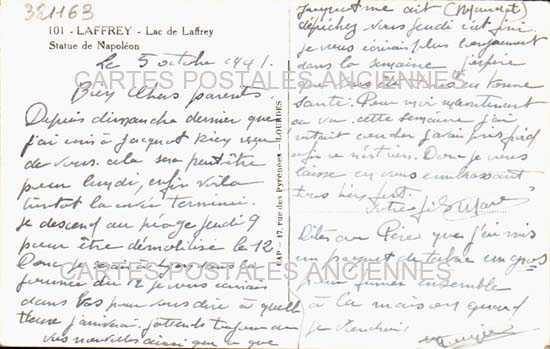 381163
101 - LAFFREY - Lac de Laffrey
Statue de Napoléon
Le 5 octobre 1941.
CARTES POSTALES ANCIENNES
Bien Chers parents,
Depuis dimanche dernier que
j'ai écris à Jacquot rien reçu
de vous. cela sera peut-être
pour lundi, enfin voila
bientot la corvée terminer.
Je descend au péage jeudi 9
pour être démobilisé le 12.
Donc je serai à Lyon dans la
journée du 12 je vous écrirais
dans bas pour vous dire à quelle
heure j'arriverai. j'attends toujours de
vos nouvelles ainsi que ce que
CAP - 17, rue des Pyrénées - LOURDES
Jacquot me dit (Mandat)
dépêchez vous jeudi c'est fini
je vous écrirais plus longuement
dans la semaine j'espère
que vous êtes tous en bonne
santé. Pour moi maintenant
ça va, cette semaine j'ai
était coucher j'avais pris froid
enfin ce n'est rien. Donc je vous
laisse en vous embrassant
tous bien fort.
Votre fils
Dites au Père que j'ai mis
un paquet de tabac un gros
pour fumer ensemble
à la maison quand
je viendrai
CARTES POSTALES ANCIENNES